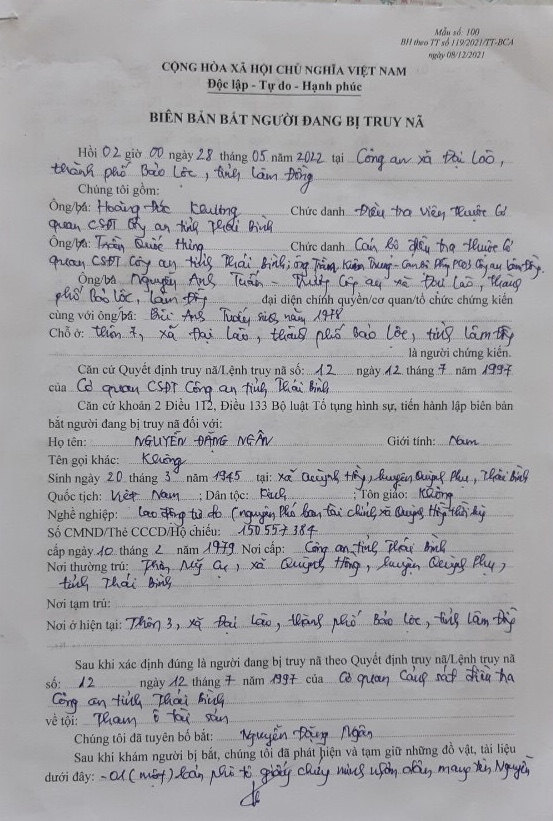 Mẫu số: 100
BH theo TT số 119/2021/TT-BCA
ngày 08/12/2021
CỘNG HÒA XÃ HỘI CHỦ NGHĨA VIỆT NAM
Độc lập - Tự do - Hạnh phúc
BIÊN BẢN BẮT NGƯỜI ĐANG BỊ TRUY NÃ
Hồi 02 giờ 00 ngày 28 tháng 05 năm 2022 tại Công an xã Đại Lào,
thành phố Bảo Lộc, tỉnh Lâm Đồng
Chúng tôi gồm:
Ông/bà: Hoàng Đắc Khương Chức danh Điều tra viên thuộc Cơ
quan CSĐT Công an tỉnh Thái Bình
Ông/bà: Trần Quốc Hùng Chức danh Cán bộ điều tra thuộc Cơ
quan CSĐT Công an tỉnh Thái Bình; ông Kiên Trung - Cán bộ Phòng PC03 Công an Lâm Đồng.
Ông/bà Nguyễn Anh Tuấn - Trưởng Công an xã Đại Lào, thành
phố Bảo Lộc, Lâm Đồng đại diện chính quyền/cơ quan/tổ chức chứng kiến
cùng với ông/bà: Bùi Anh sinh năm 1978
Chỗ ở: thôn 7, xã Đại Lào, thành phố Bảo Lộc, tỉnh Lâm Đồng
là người chứng kiến.
Căn cứ Quyết định truy nã/Lệnh truy nã số: 12 ngày 12 tháng 7 năm 1997
của Cơ quan CSĐT Công an tỉnh Thái Bình
Căn cứ khoản 2 Điều 112, Điều 133 Bộ luật Tố tụng hình sự, tiến hành lập biên bản
bắt người đang bị truy nã đối với:
Họ tên: NGUYỄN ĐĂNG NGÂN Giới tính: Nam
Tên gọi khác: Không
Sinh ngày 20 tháng 3 năm 1945 tại: xã Quỳnh Hồng, huyện Quỳnh Phụ, Thái Bình
Quốc tịch: Việt Nam; Dân tộc: Kinh; Tôn giáo: Không
Nghề nghiệp: Lao động tự do (nguyên Phó ban tài chính xã Quỳnh Hồng
Số CMND/Thẻ CCCD/Hộ chiếu: 150557384
cấp ngày 10 tháng 2 năm 1979 Nơi cấp: Công an tỉnh Thái Bình
Nơi thường trú: Thôn Mỹ Cự, xã Quỳnh Hồng, huyện Quỳnh Phụ,
tỉnh Thái Bình
Nơi tạm trú:
Nơi ở hiện tại: Thôn 3, xã Đại Lào, thành phố Bảo Lộc, tỉnh Lâm Đồng
Sau khi xác định đúng là người đang bị truy nã theo Quyết định truy nã/Lệnh truy nã
số: 12 ngày 12 tháng 7 năm 1997 của Cơ quan Cảnh sát điều tra
Công an tỉnh Thái Bình
về tội: Tham ô tài sản
Chúng tôi đã tuyên bố bắt: Nguyễn Đăng Ngân
Sau khi khám người bị bắt, chúng tôi đã phát hiện và tạm giữ những đồ vật, tài liệu
dưới đây: - 01 (một) bản phô tô giấy chứng minh nhân dân mang tên Nguyễn